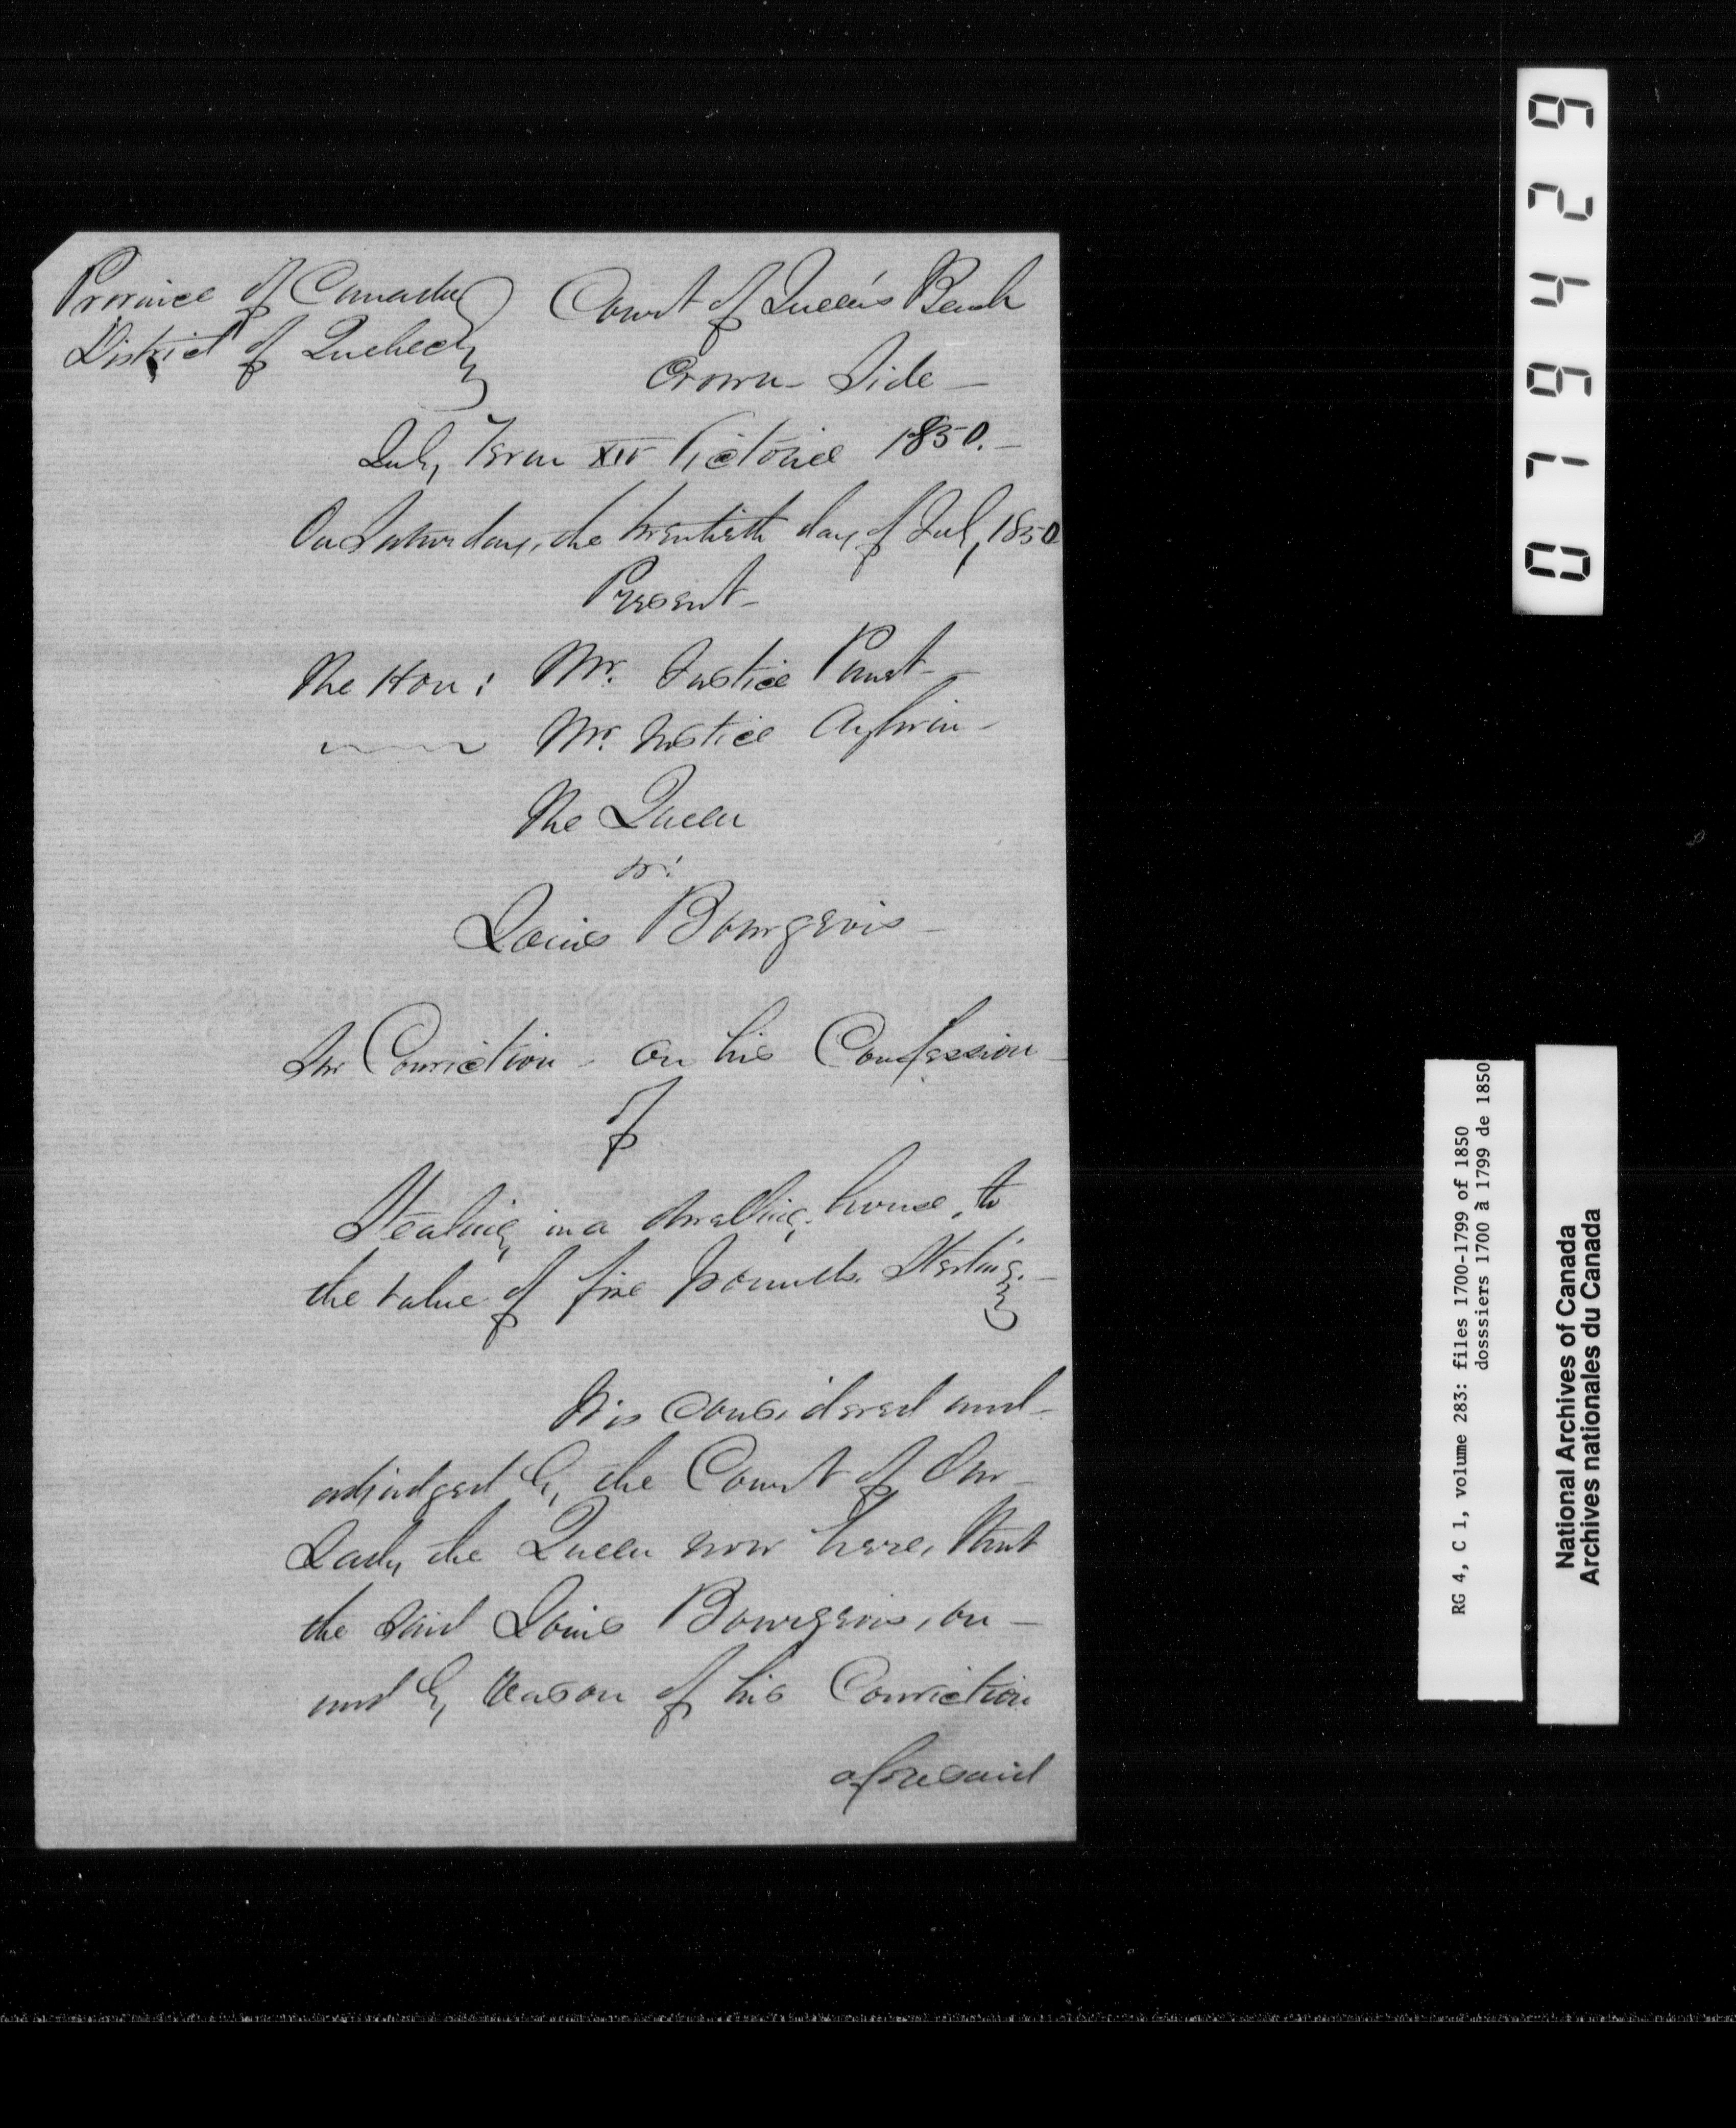 Province of Canada
District of Quebec
Court of Queen's Bench
Crown Side
July Term XIV Victoriæ 1850.
On Saturday, the twentieth day of July, 1850
Present
The Hon: Mr. Justice Panet
Mr. Justice Aylwin
The Queen
vs:
Louis Bourgeois
Conviction - on his Confession
of
Stealing in a dwelling house, to
the value of five pounds Sterling
It is considered and
adjudged by the Court of Our
Lady the Queen now here, that
the said Louis Bourgeois, on
and by reason of his Conviction
aforesaid
079429
RG 4, C 1, volume 283: files 1700-1799 of 1850
dosssiers 1700 à 1799 de 1850
National Archives of Canada
Archives nationales du Canada